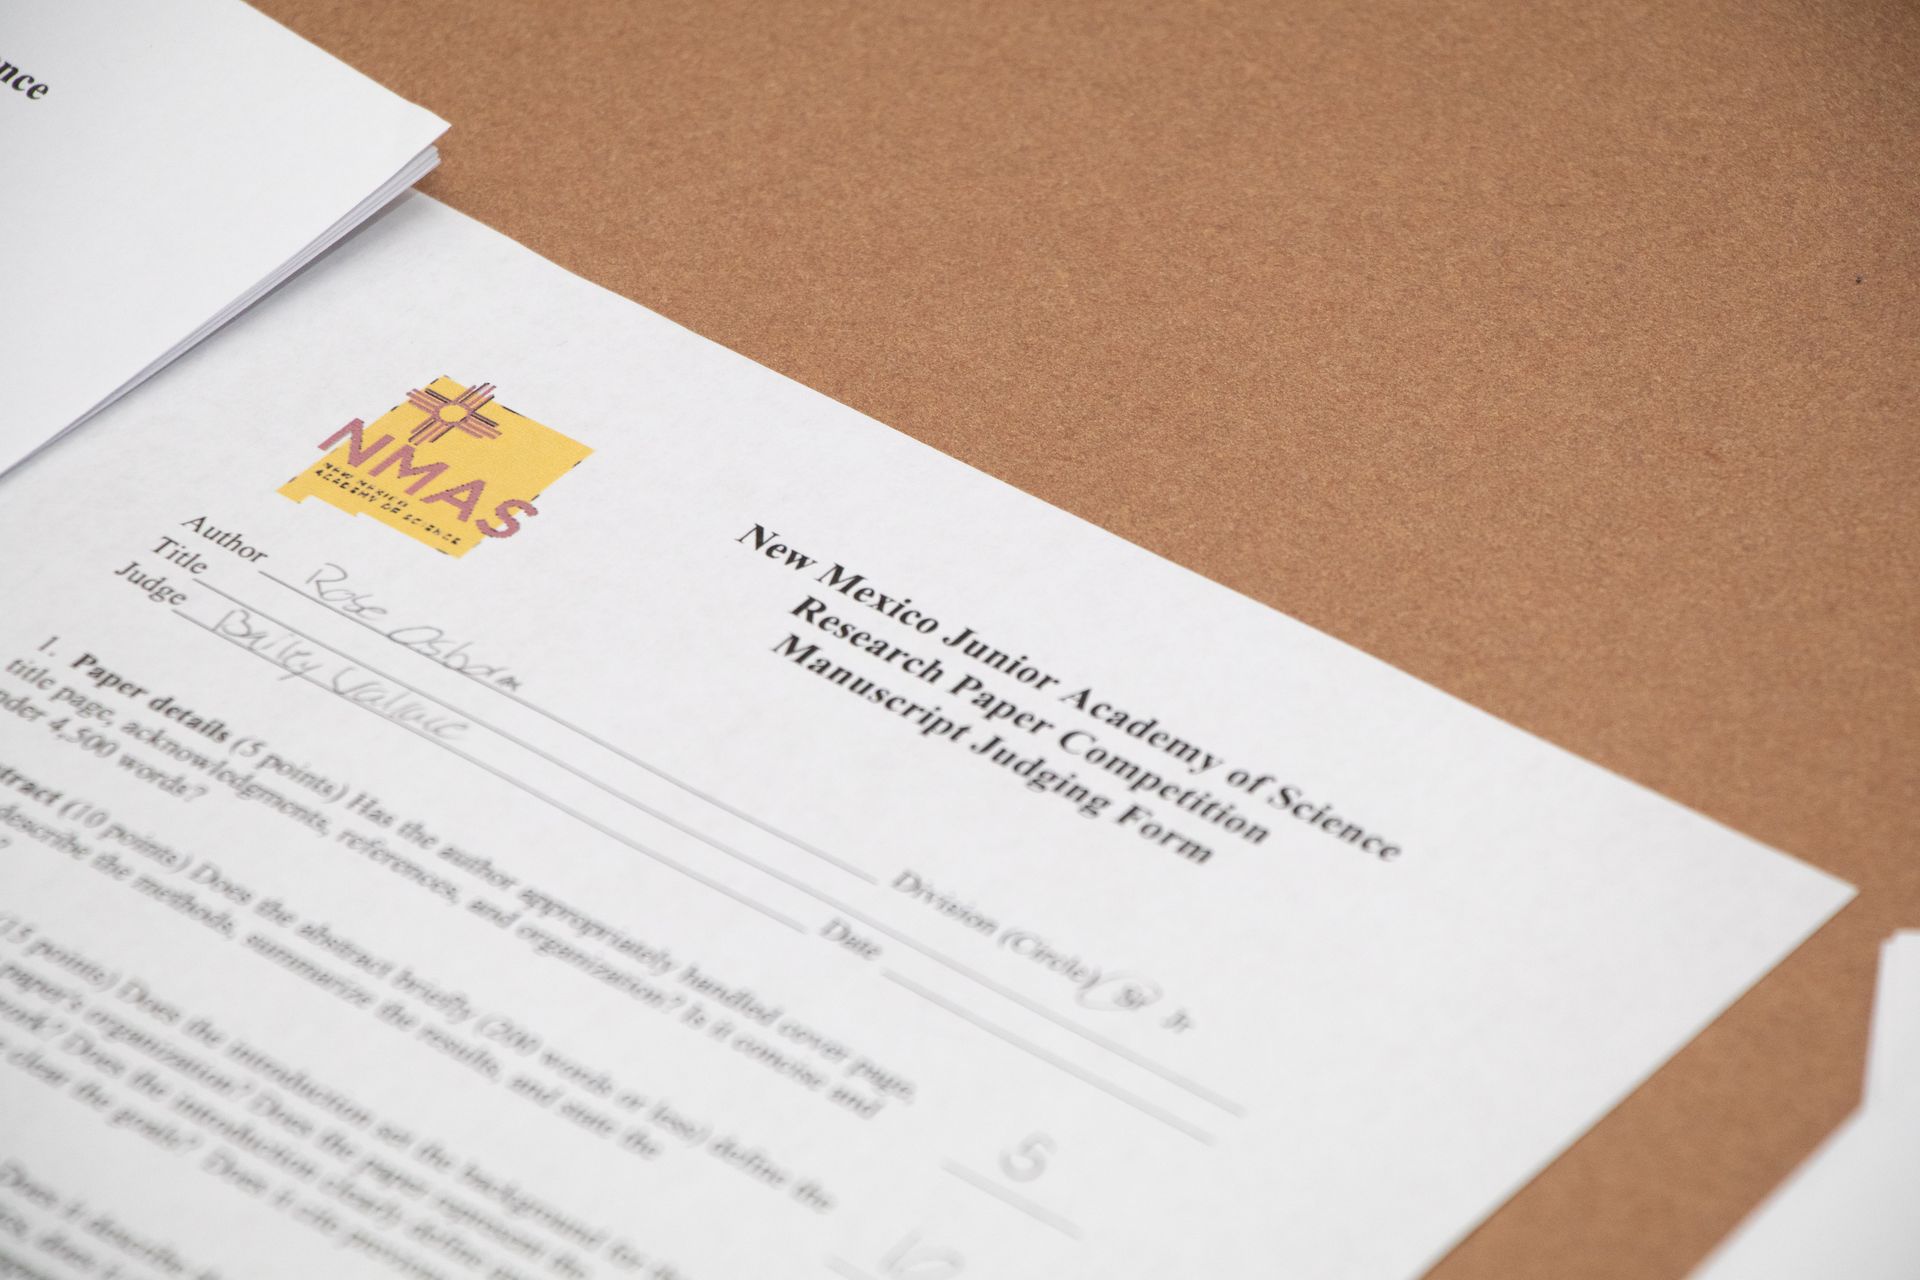 nce
NMAS
NEW MEXICO
ACADEMY OF SCIENCE
New Mexico Junior Academy of Science
Research Paper Competition
Manuscript Judging Form
Author Rose Osborn Division (Circle) Sr Jr
Title
Judge Bailey Date
1. Paper details (5 points) Has the author appropriately handled cover page,
title page, acknowledgments, references, and organization? Is it concise and
nder 4,500 words? 5
tract (10 points) Does the abstract briefly (200 words or less) define the
describe the methods, summarize the results, and state the
? 10
(15 points) Does the introduction set the background for the
paper's organization? Does the paper represent the
work? Does the introduction clearly define
clear the goals? Does it cite previous
Does it describe the